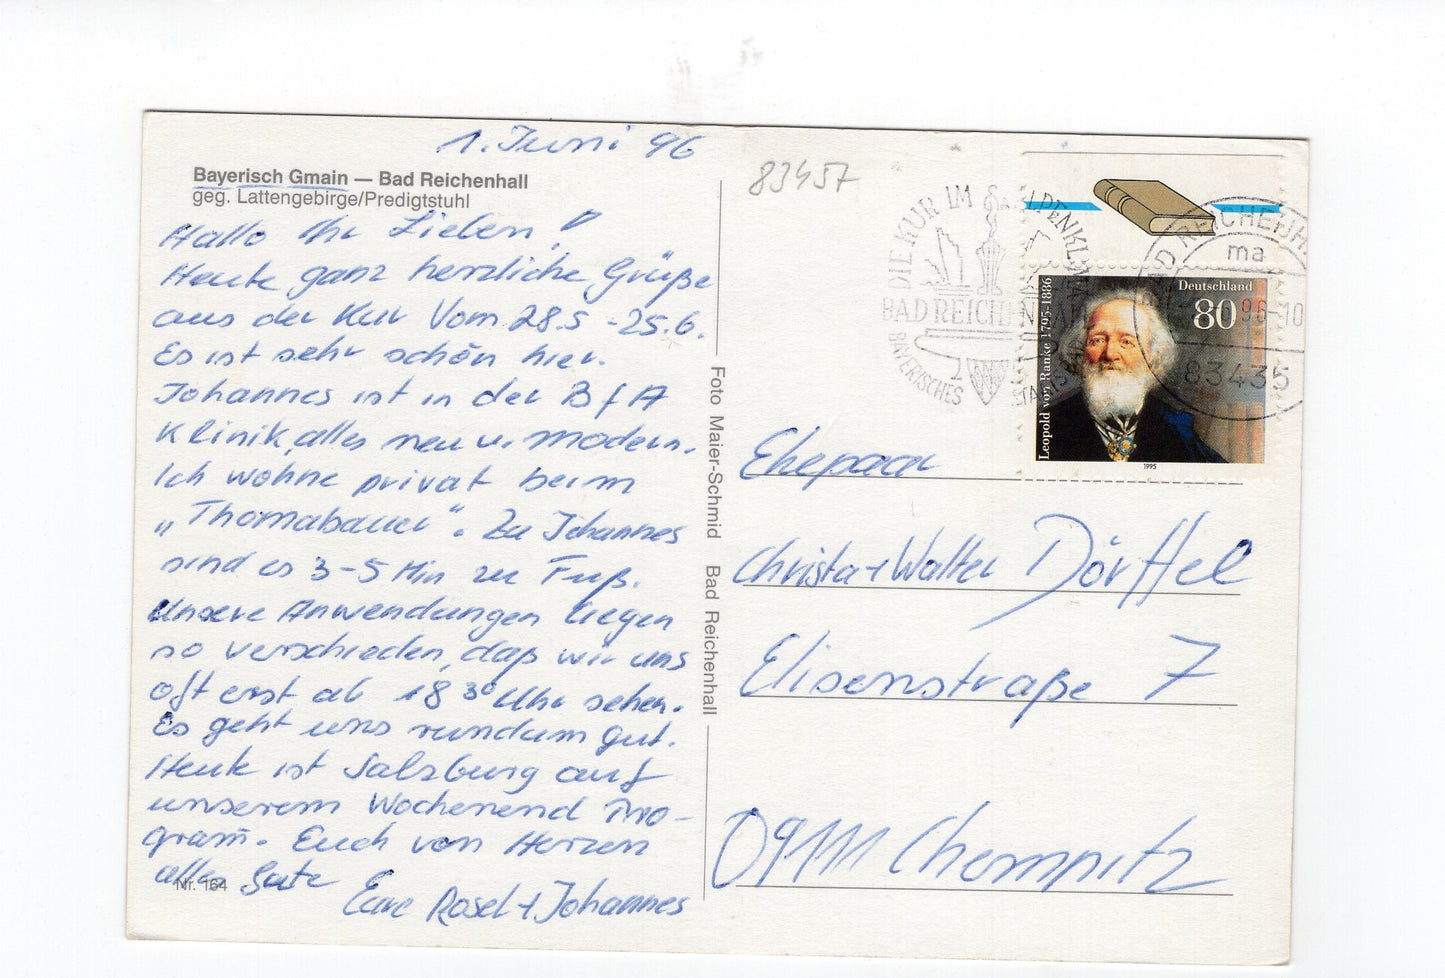 1. Juni 96
Bayerisch Gmain — Bad Reichenhall
geg. Lattengebirge/Predigtstuhl
Hallo Ihr Lieben!
Heute ganz herzliche Grüße
aus der Kur Vom 28.5 - 25.6.
Es ist sehr schön hier.
Johannes ist in der BfA
Klinik, alles neu u. modern.
Ich wohne privat beim
„Thomabauer“. Zu Johannes
sind es 3-5 Min zu Fuß.
Unsere Anwendungen liegen
so verschieden, daß wir uns
oft erst ab 18 30 Uhr sehen.
Es geht uns rundum gut.
Heute ist Salzburg auf
unserem Wochenend Pro-
gram̄. Euch von Herzen
alles Gute
Eure Rosel + Johannes
Nr. 164
Foto Maier-Schmid Bad Reichenhall
83457
DIE KUR IM
BAD REICHENHALL
BAYERISCHES
BAD REICHENH
ma
96-10
83435
Deutschland
80
Leopold von Ranke 1795-1886
1995
Ehepaar
Christa + Walter Dörffel
Elisenstraße 7
09111 Chemnitz